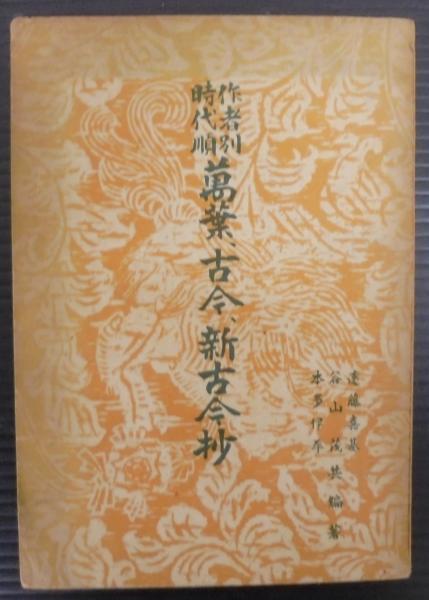 作者別
時代順
萬葉、古今、新古今抄
遠藤嘉基
谷山茂共編著
本多伊平